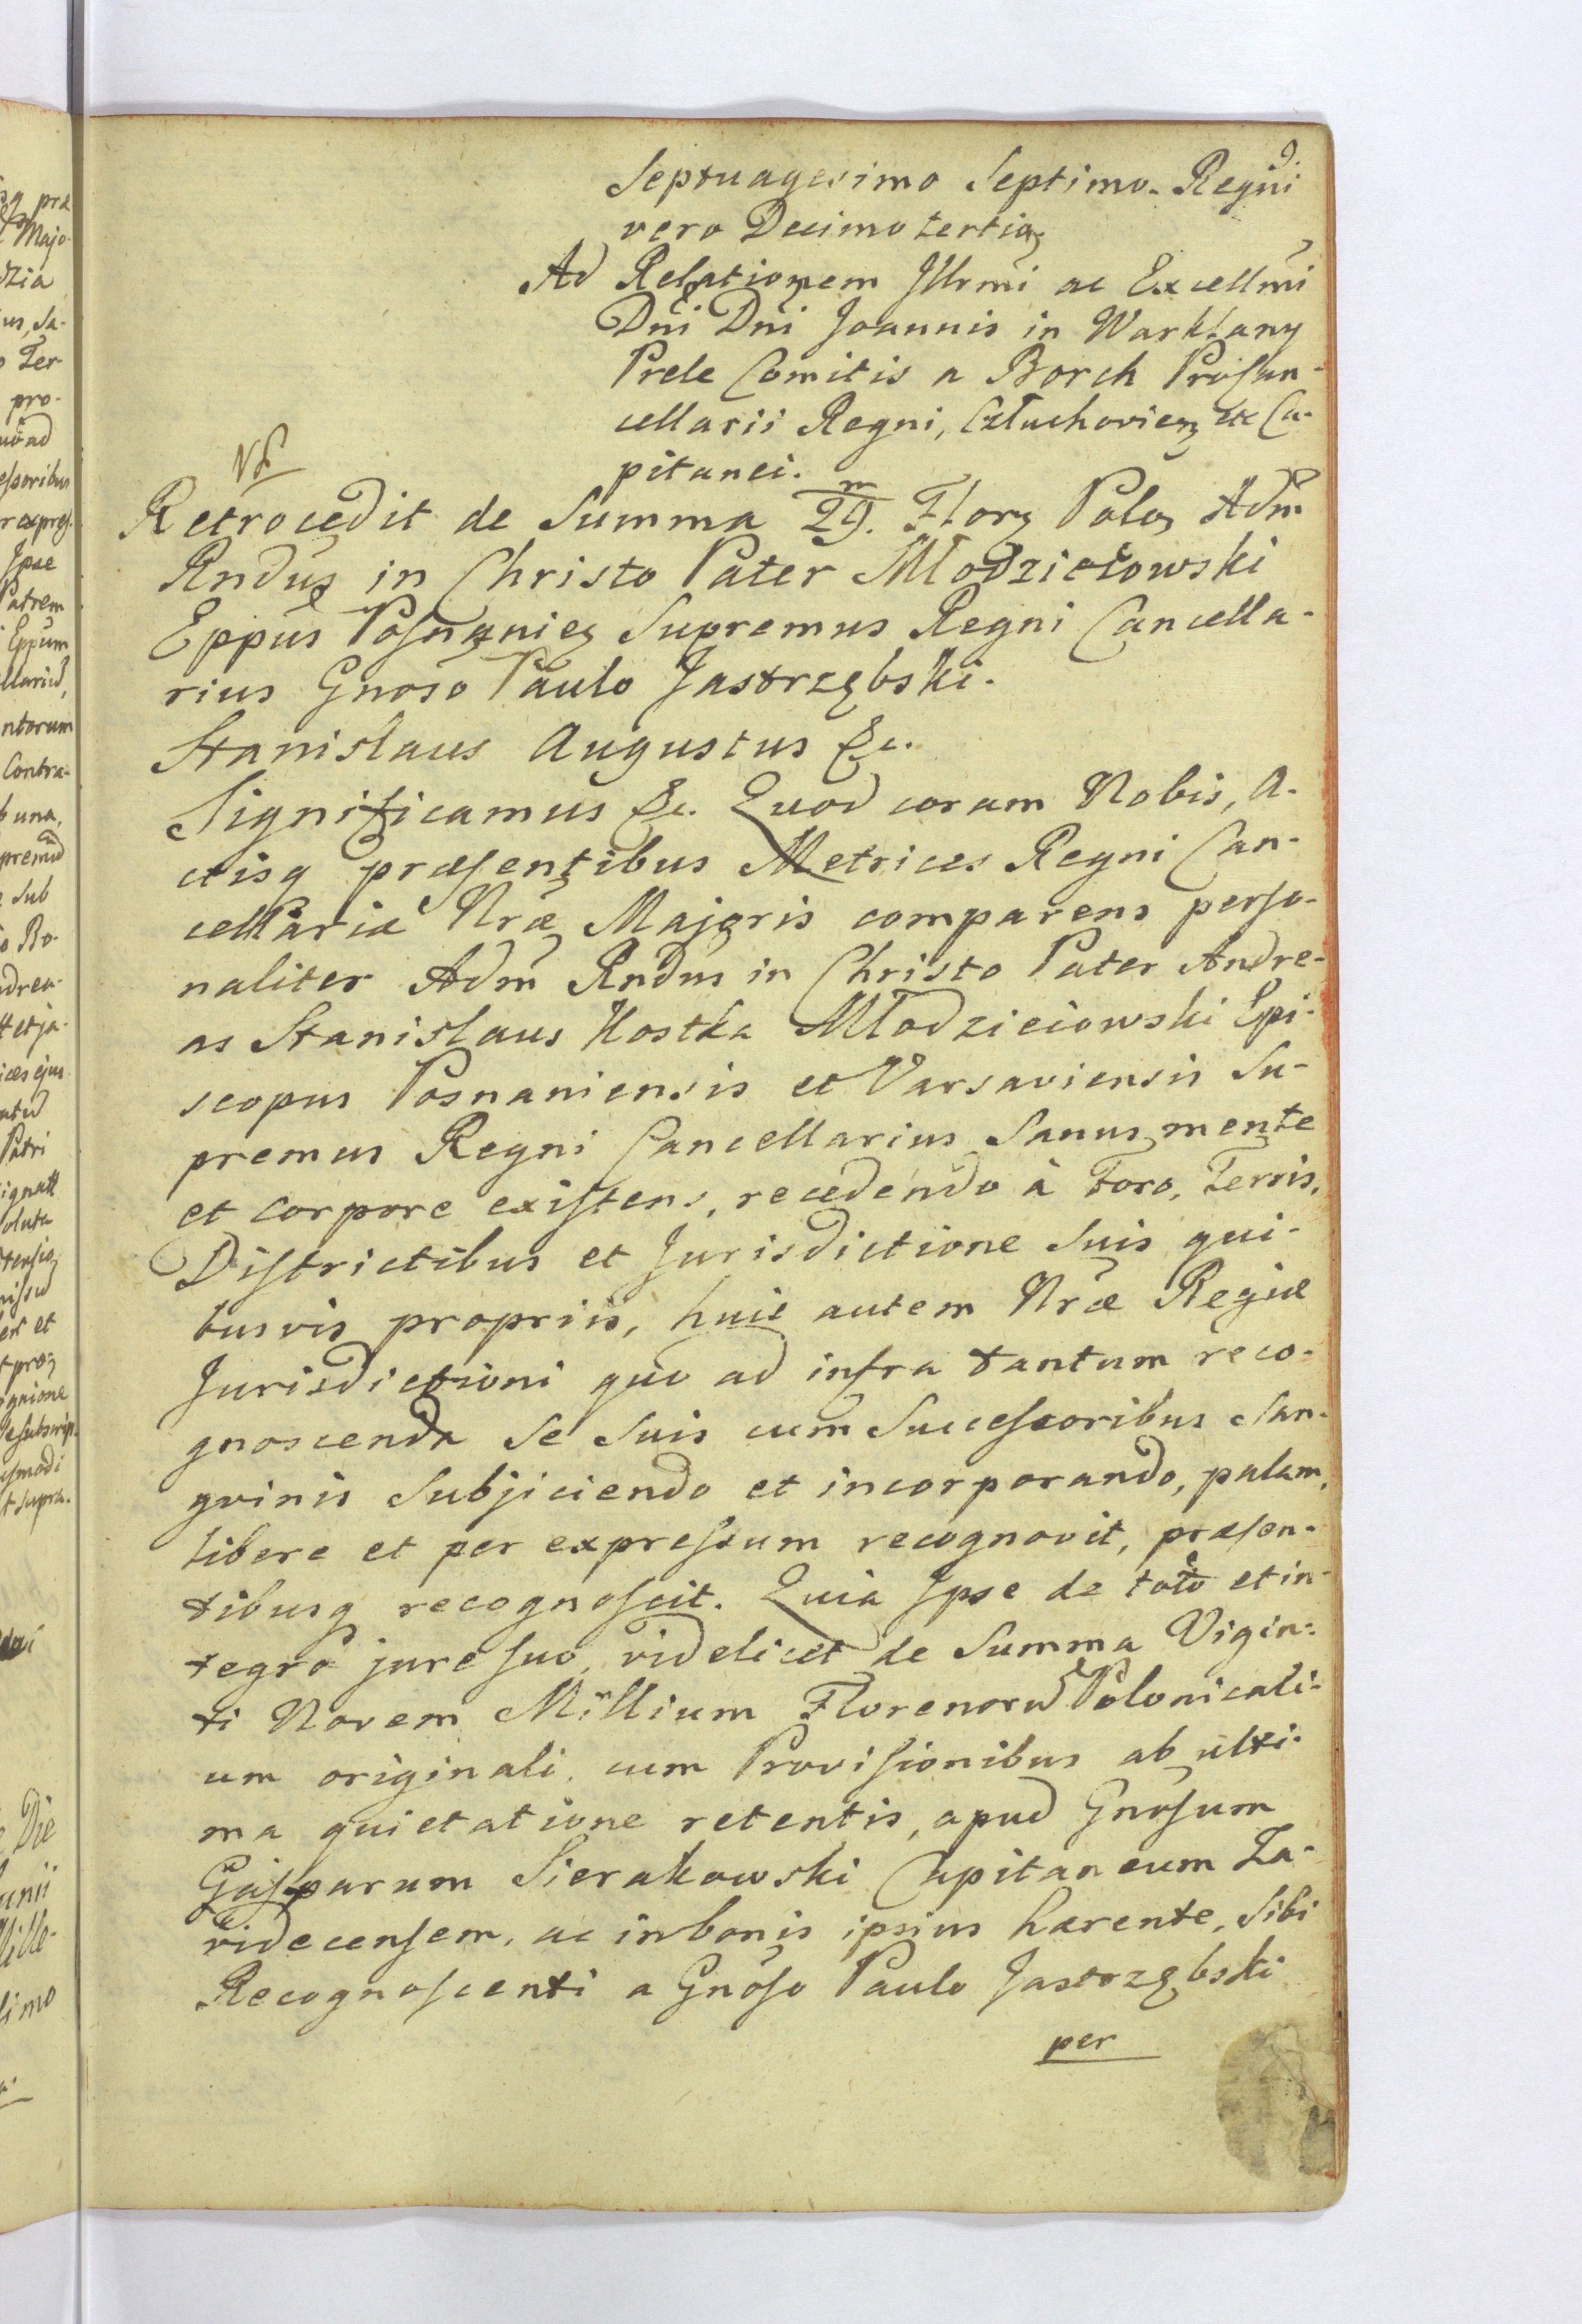 9
Septuagesimo Septimo. Regni
vero Decimo tertio
Ad Relationem Jllrmi ac Excellmi
Dni Dni Joannis in Warklany
Prele Comitis a Borch Procan-
cellarii Regni, Człuchovien etc Ca-
pitanei.
Retrocedit de Summa 29.m Flor Polo Adm
Rndus in Christo Pater Młodzieiowski
Eppus Posnanien Supremus Regni Cancella-
rius Gnoso Paulo Jastrzębski.
Stanislaus Augustus &c.
Significamus &c. Quod coram Nobis, A-
ctisq præsentibus Metrices Regni Can-
cellariæ Nræ Majoris comparens perso-
naliter Adm Rndus in Christo Pater Andre-
as Stanislaus Kostka Młodzieiowski Epi-
scopus Posnaniensis et Varsaviensis Su-
premus Regni Cancellarius Sanus mente
et corpore existens, recedendo à Foro, Terris,
Districtibus et Jurisdictione Suis qui-
busvis propriis, huic autem Nræ Regiæ
Jurisdictioni quo ad infra tantum reco-
gnoscenda Se Suis cum Successoribus San-
gvinis Subjiciendo et incorporando, palam,
libere et per expressum recognovit, præsen-
tibusq recognoscit. Quia Jpse de toto et in-
tegro jure suo, videlicet de Summa Vigin-
ti Novem Millium Florenorū Polonicali-
um originali, cum Provisionibus ab ulti-
ma quietatione retentis, apud Gnosum
Gasparum Sierakowski Capitaneum Za-
videcensem, ac in bonis ipsius hærente, Sibi
Recognoscenti a Gnoso Paulo Jastrzębski
per